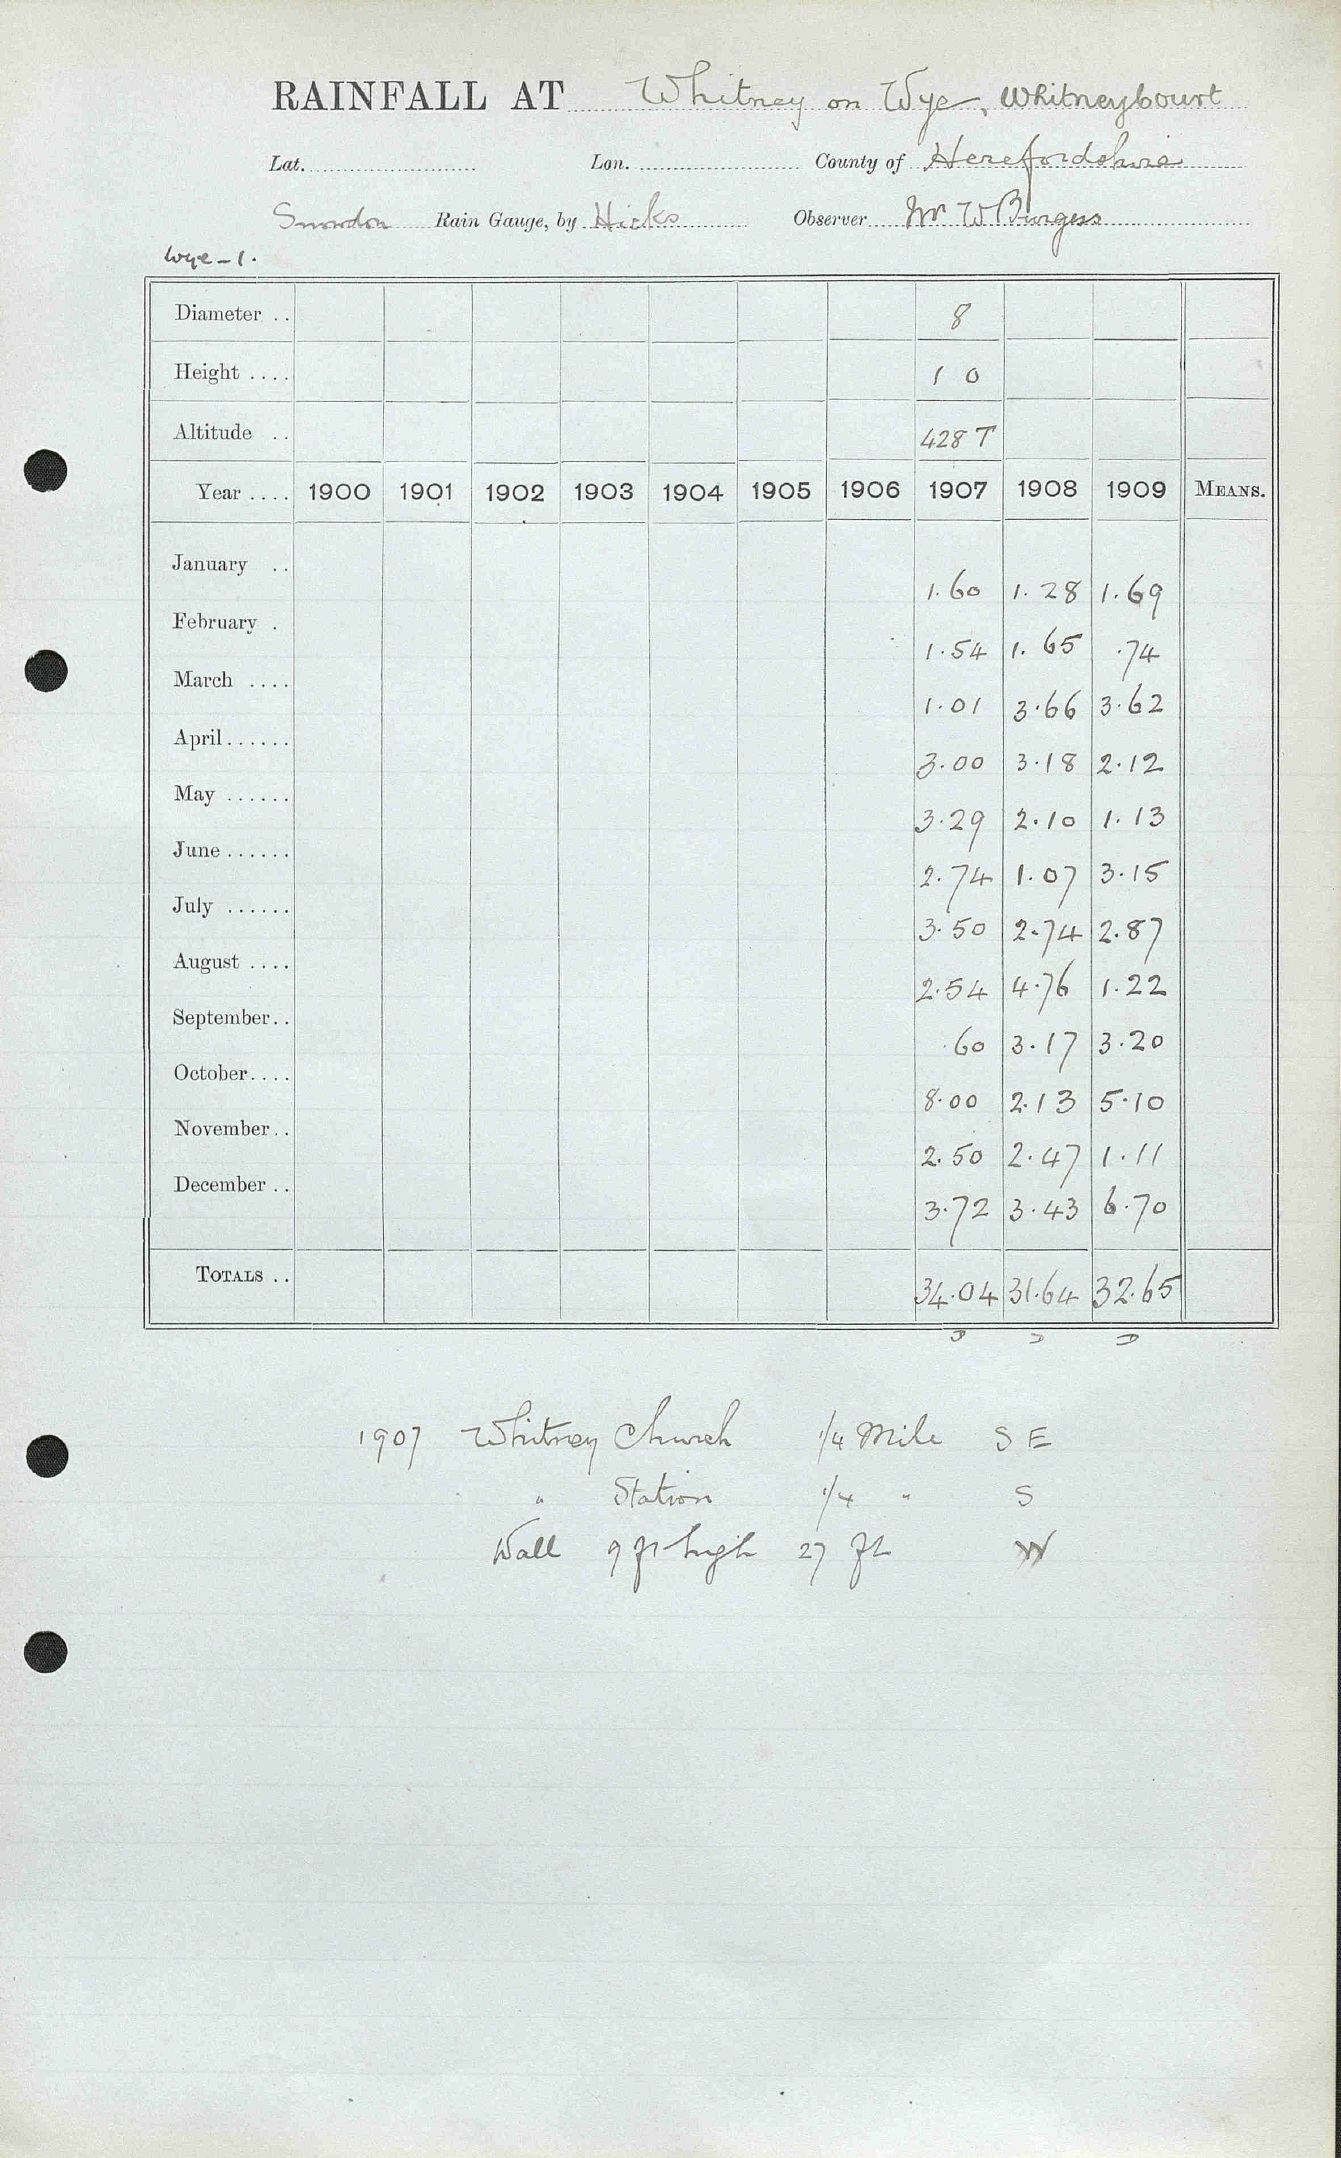 RAINFALL AT Whitney on Wye, Whitney Court
Lat. Lon. County of Herefordshire
Snowdon Rain Gauge, by Hicks Observer Mr W Burgess
Wye-1.
Diameter .. 8
Height .... 1 0
Altitude .. 428 T
Year .... 1900 1901 1902 1903 1904 1905 1906 1907 1908 1909 MEANS.
January .. 1.60 1.28 1.69
February . 1.54 1.65 .74
March .... 1.01 3.66 3.62
April...... 3.00 3.18 2.12
May ...... 3.29 2.10 1.13
June ...... 2.74 1.07 3.15
July ...... 3.50 2.74 2.87
August .... 2.54 4.76 1.22
September.. .60 3.17 3.20
October.... 8.00 2.13 5.10
November.. 2.50 2.47 1.11
December .. 3.72 3.43 6.70
TOTALS .. 34.04 31.64 32.65
1907 Whitney Church 1/4 Mile S E
" Station 1/4 " S
Wall 9 ft high 27 ft W